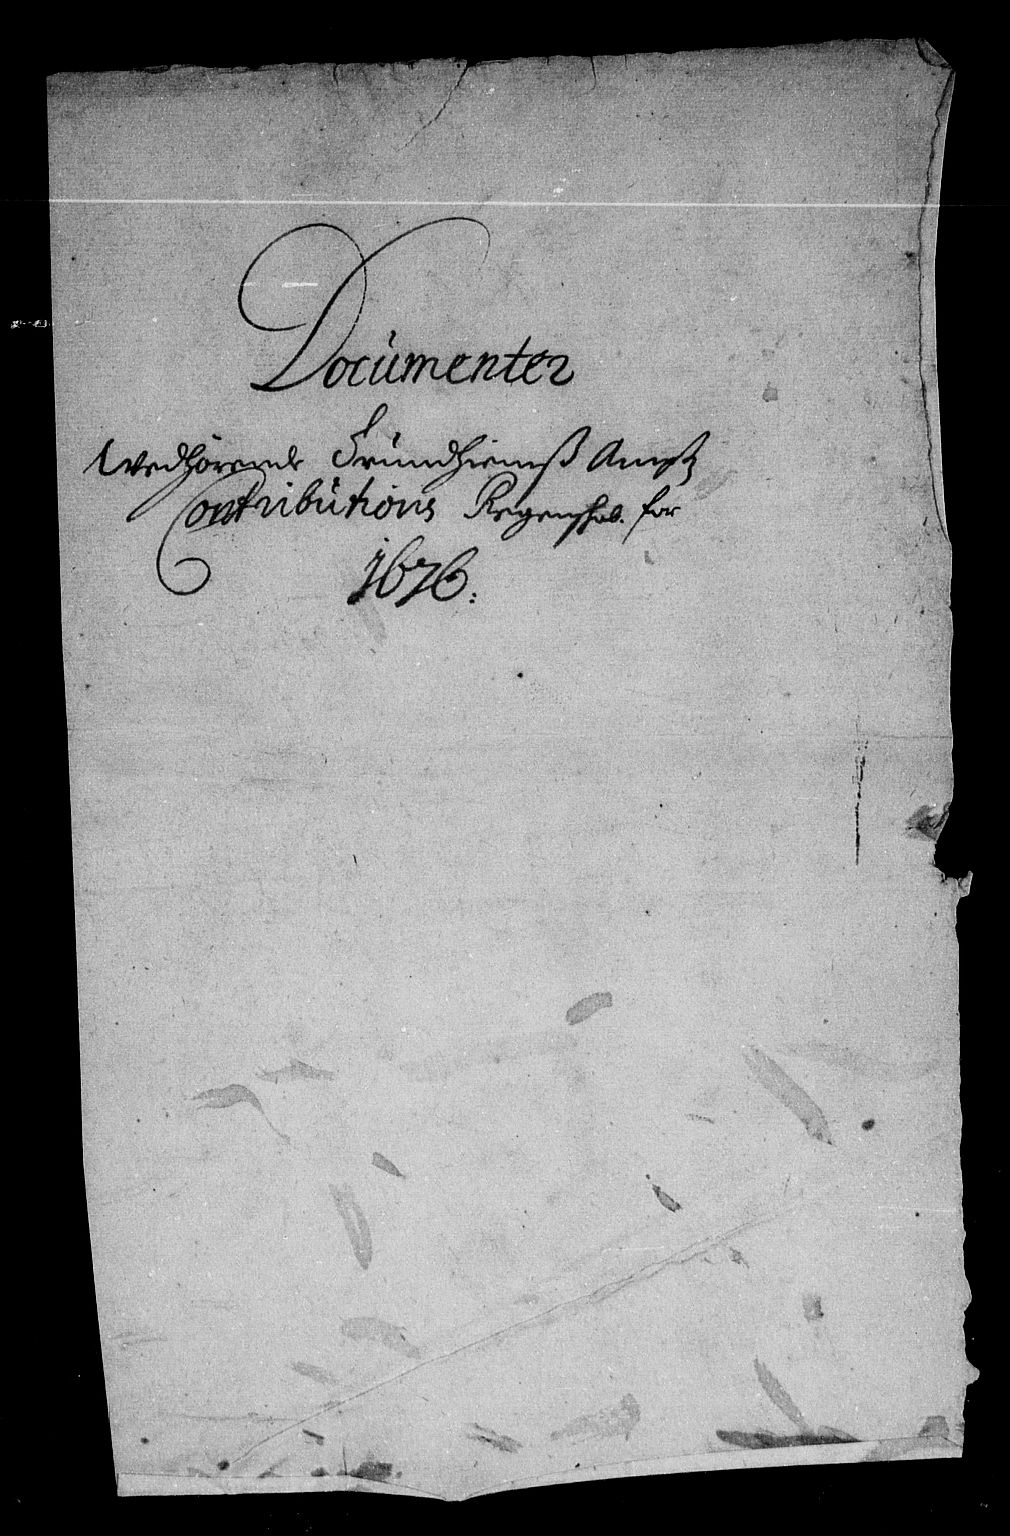 Documenter
Wedhörende Trundhiembß Ampts
Contributions Regenschab. for
1676.